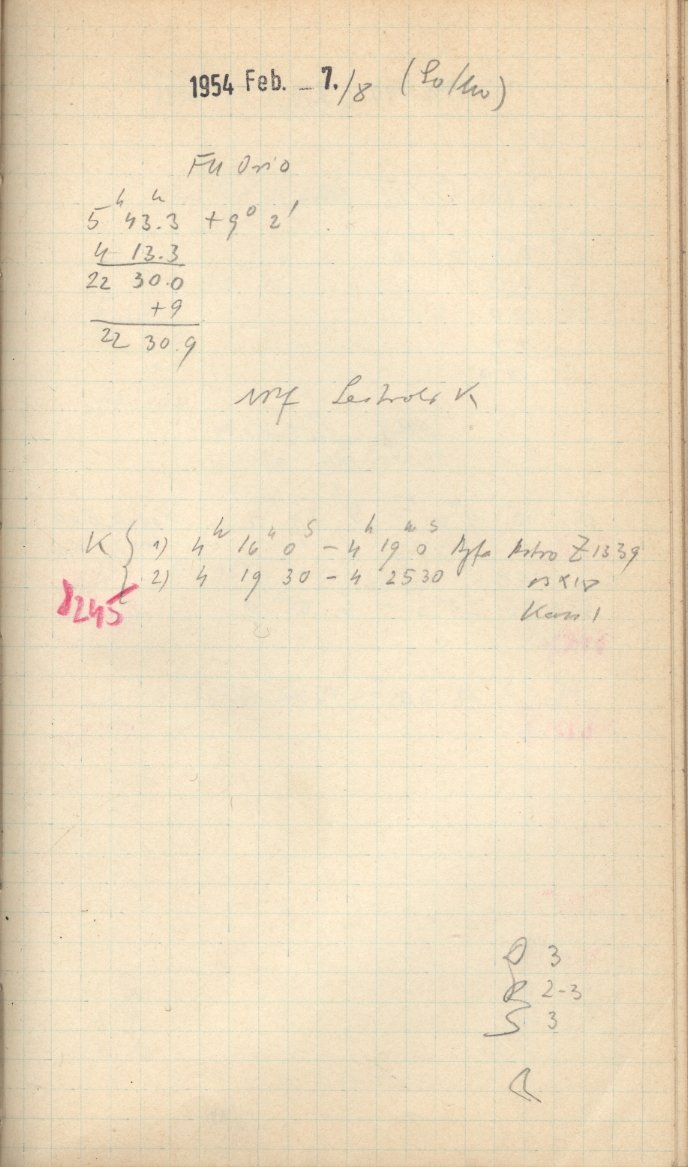 1954 Feb. – 7./8 (So/Mo)
FU Orio
5 h 43.3 m +9° 2'
4 13.3
22 30.0
+9
22 30.9
K { 1) 4 h 16 m 0 s – 4 h 19 m 0 s Agfa Astro Z 1339
2) 4 19 30 – 4 25 30
8245
Kass 1
D 3
R 2-3
S 3